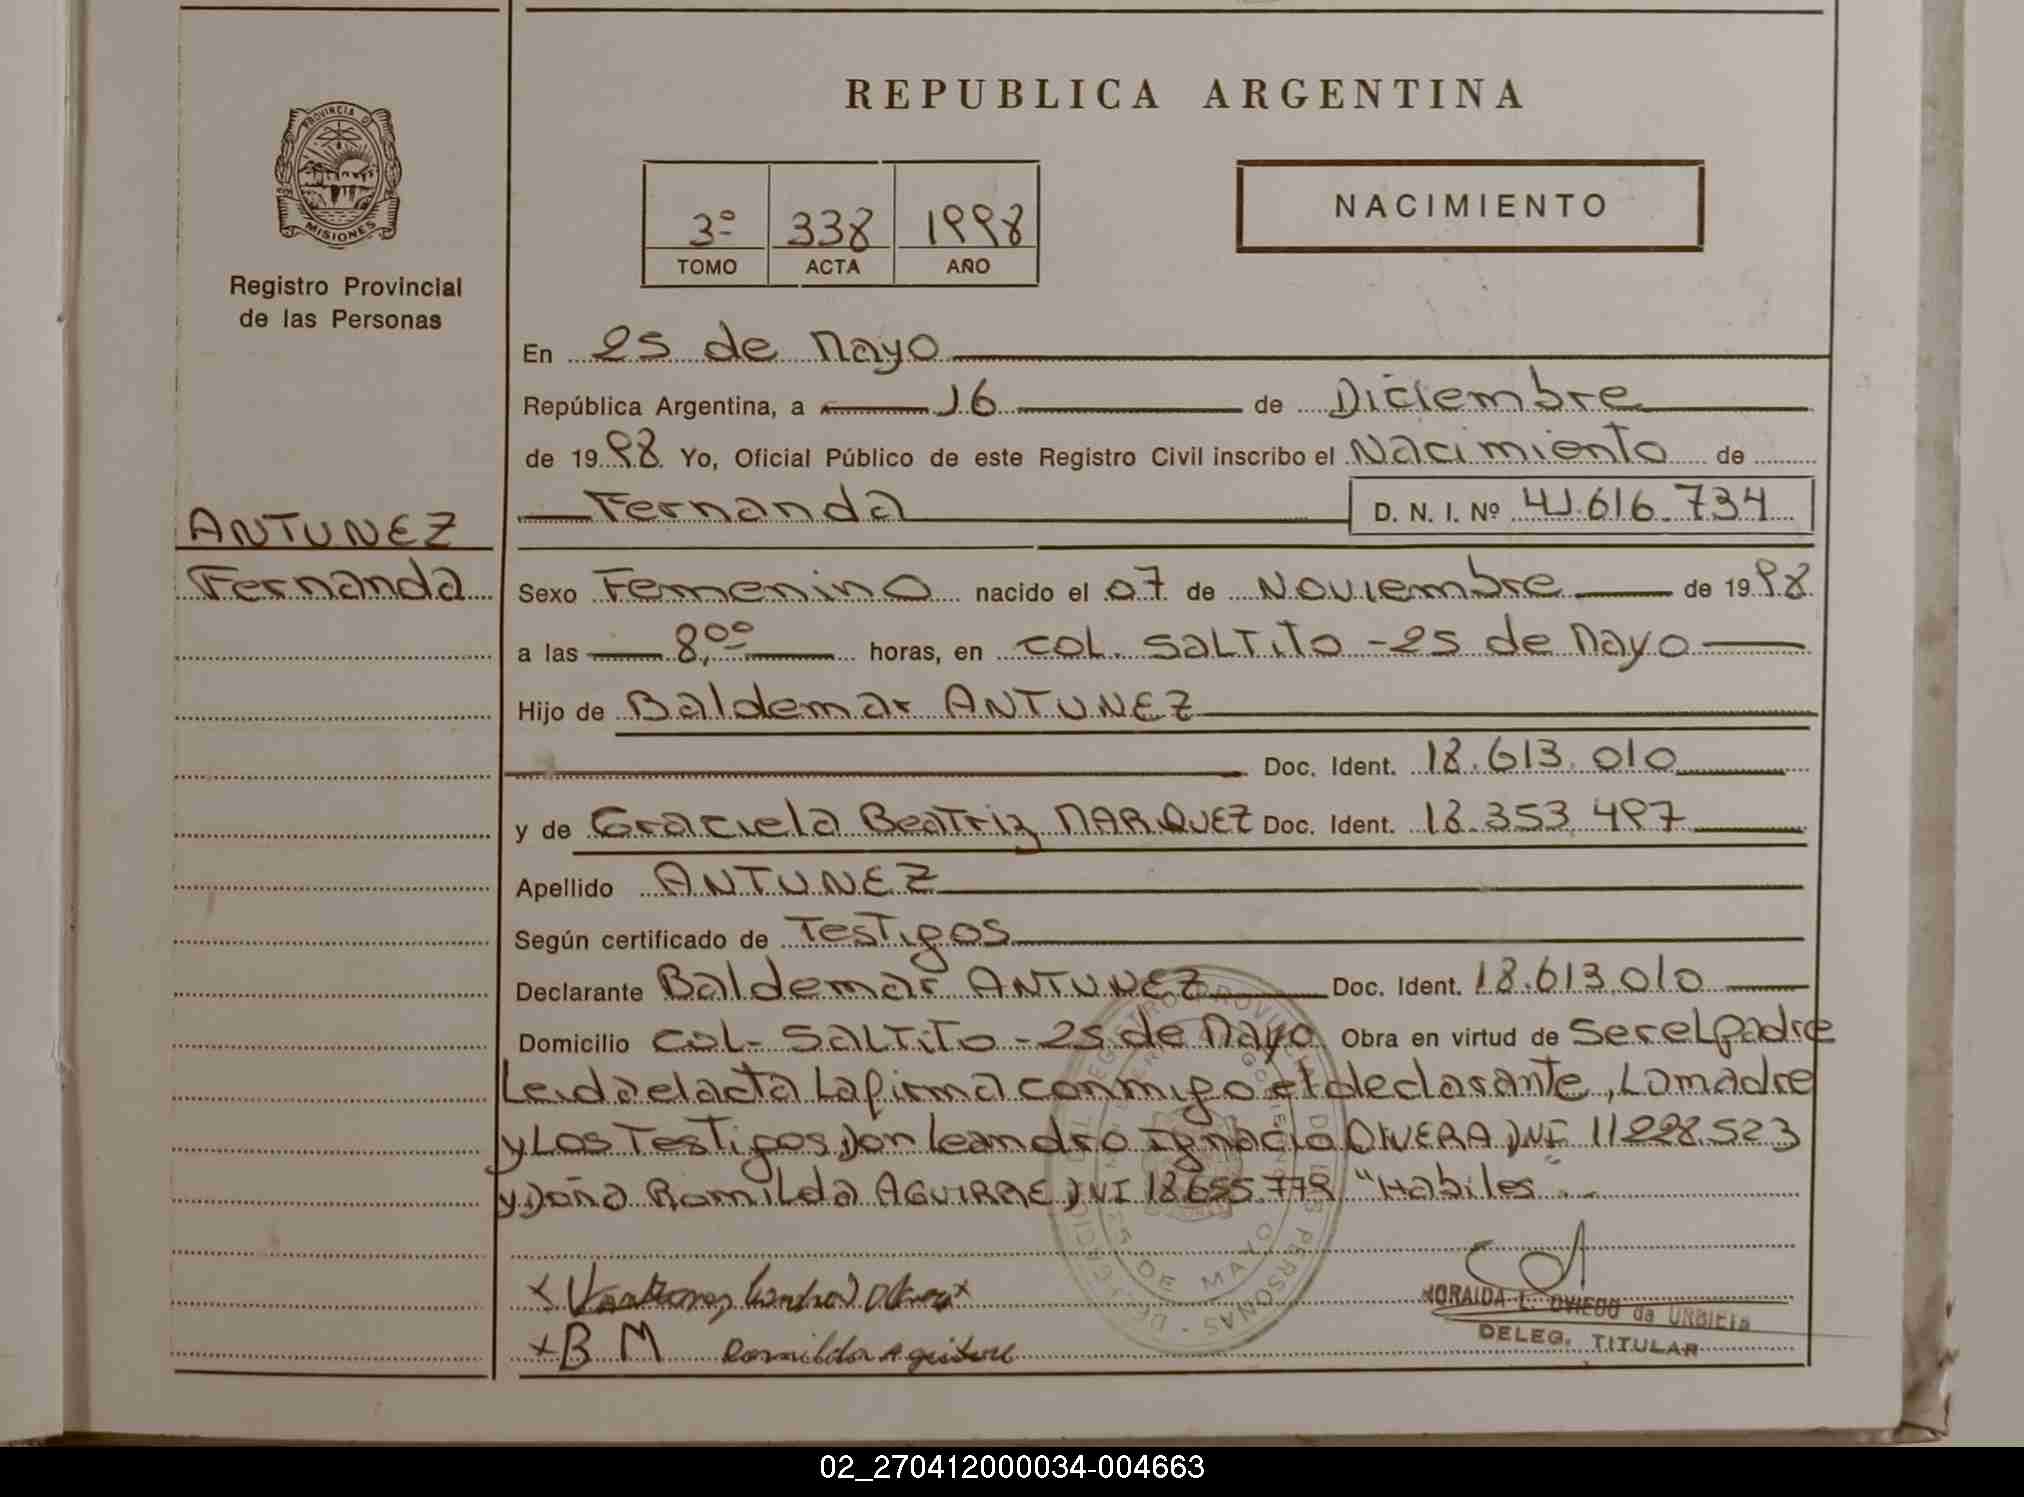 REPUBLICA ARGENTINA
PROVINCIA D
MISIONES
Registro Provincial
de las Personas
3º 338 1998
TOMO ACTA AÑO
NACIMIENTO
En 25 de Mayo
República Argentina, a 16 de Diciembre
de 1998 Yo, Oficial Público de este Registro Civil inscribo el Nacimiento de
ANTUNEZ
Fernanda
Fernanda D. N. I. Nº 41.616.734
Sexo Femenino nacido el 07 de Noviembre de 1998
a las 8,00 horas, en COL. SALTITO - 25 de Mayo
Hijo de Baldemar ANTUNEZ
Doc. Ident. 18.613.010
y de Graciela Beatriz MARQUEZ Doc. Ident. 18.353.497
Apellido ANTUNEZ
Según certificado de Testigos
Declarante Baldemar ANTUNEZ Doc. Ident. 18.613.010
Domicilio COL- SALTITO - 25 de Mayo Obra en virtud de ser el padre
Leida el acta La firma conmigo el declarante, La madre
y Los Testigos Don Leandro Ignacio OLIVERA DNI 11228.523
y Doña Romilda AGUIRRE DNI 18.655.779 "Habiles
25 DE MAYO
x
x B M Romilda Aguirre
L. OVIEDO de URBIETA
DELEG. TITULAR
02_270412000034-004663